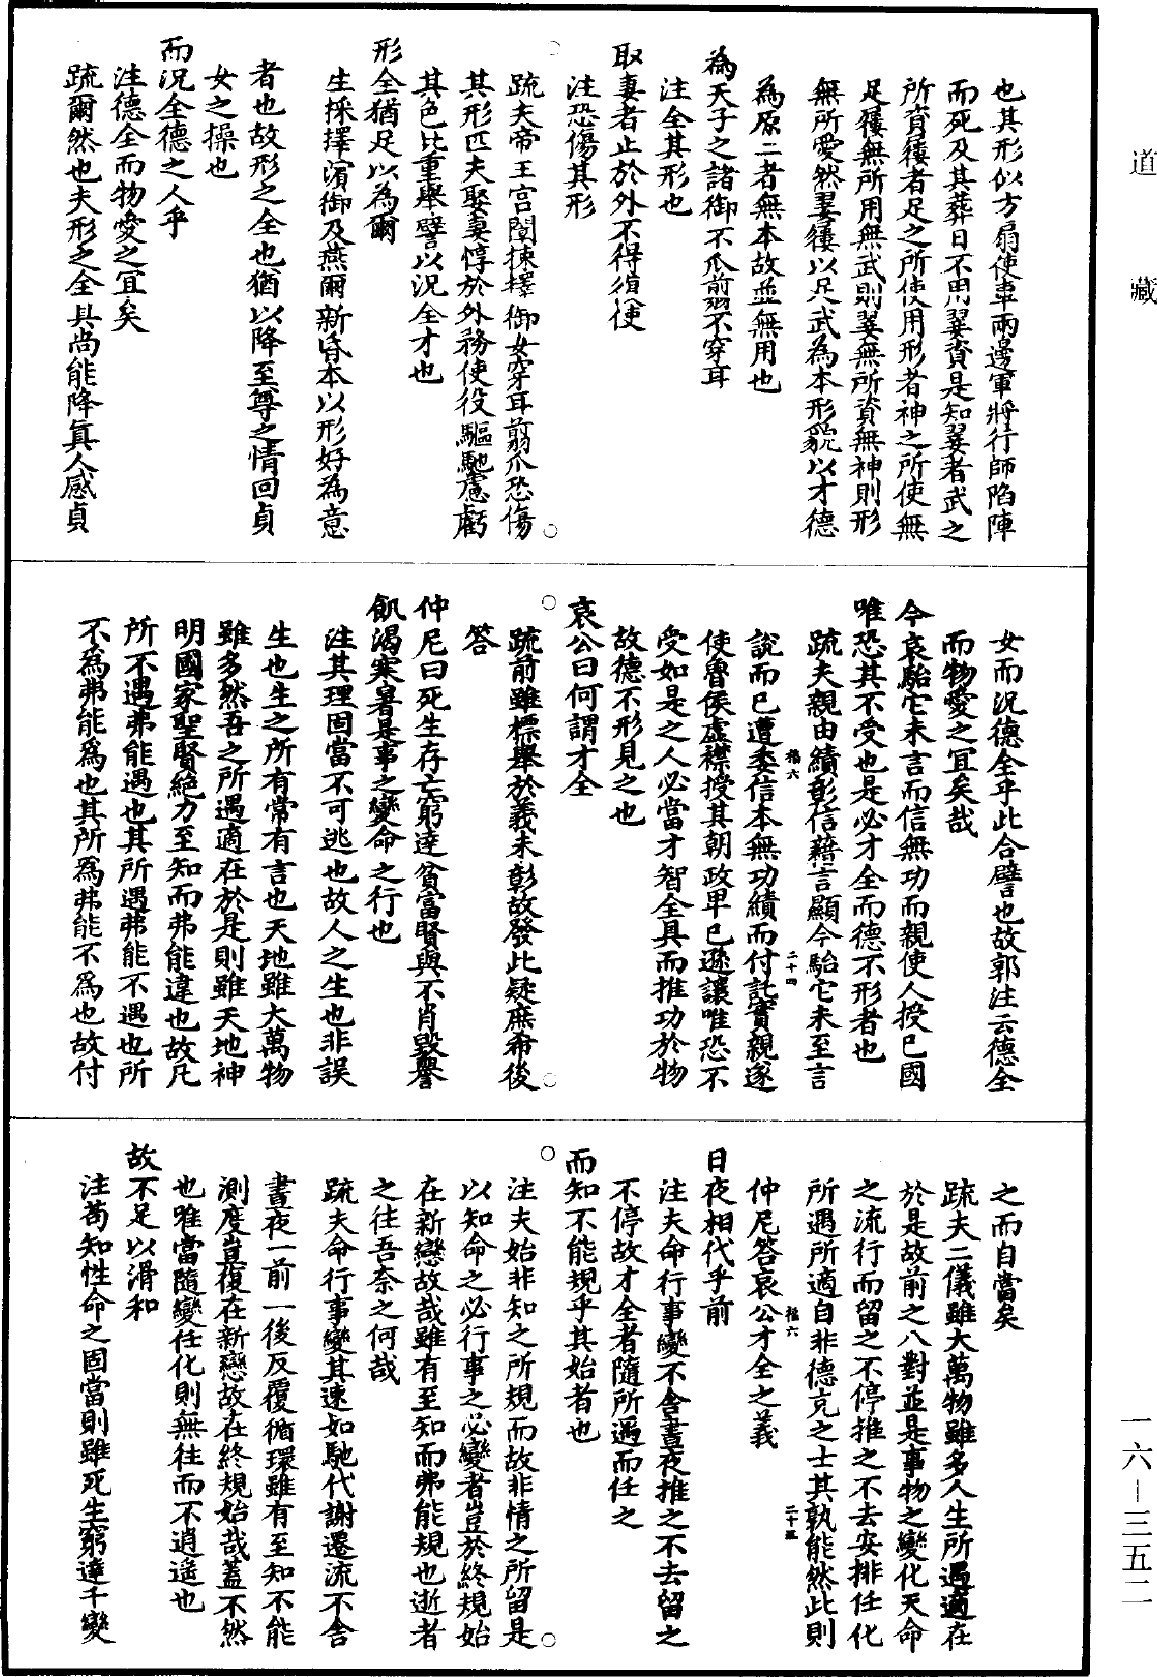 道藏
也其形似方扇使車兩邊軍將行師陷陣
而死及其葬日不用翣資是知翣者武之
所資屨者足之所使用形者神之所使無
足屨無所用無武則翣無所資無神則形
無所愛然翣屨以足武為本形貌以才德
為原二者無本故並無用也
為天子之諸御不爪翦不穿耳
注全其形也
取妻者止於外不得復使
注恐傷其形
疏夫帝王宮闈揀擇御女穿耳翦爪恐傷
其形匹夫娶妻惇於外務使役驅馳慮虧
其色此重舉譬以況全才也
形全猶足以為爾
生採擇濱御及燕爾新昏本以形好為意
者也故形之全也猶以降至尊之情回貞
女之操也
而況全德之人乎
注德全而物愛之宜矣
疏爾然也夫形之全具尚能降真人感貞
女而況德全乎此合譬也故郭注云德全
而物愛之宜矣哉
今哀駘它未言而信無功而親使人授已國
唯恐其不受也是必才全而德不形者也
疏夫親由績彰信藉言顯今駘它未至言
說而已遭委信本無功績而付託實親遂
使魯侯虛襟授其朝政卑已遜讓唯恐不
受如是之人必當才智全具而推功於物
故德不形見之也
哀公曰何謂才全
疏前雖標舉於義未彰故發此疑庶希後
答
仲尼曰死生存亡窮達貧富賢與不肖毀譽
飢渴寒暑是事之變命之行也
注其理固當不可逃也故人之生也非誤
生也生之所有常有言也天地雖大萬物
雖多然吾之所遇適在於是則雖天地神
明國家聖賢絕力至知而弗能違也故凡
所不遇弗能遇也其所遇弗能不遇也所
不為弗能為也其所為弗能不為也故付
之而自當矣
疏夫二儀雖大萬物雖多人生所遇適在
於是故前之八對並是事物之變化天命
之流行而留之不停推之不去安排任化
所遇所適自非德充之士其孰能然此則
仲尼答哀公才全之義
日夜相代乎前
注夫命行事變不舍晝夜推之不去留之
不停故才全者隨所遇而任之
而知不能規乎其始者也
注夫始非知之所規而故非情之所留是
以知命之必行事之必變者豈於終規始
在新戀故哉雖有至知而弗能規也逝者
之往吾奈之何哉
疏夫命行事變其速如馳代謝遷流不舍
晝夜一前一後反覆循環雖有至知不能
測度豈復在新戀故在終規始哉蓋不然
也唯當隨變任化則無往而不逍遙也
故不足以滑和
注苟知性命之固當則雖死生窮達千變
一六－三五二